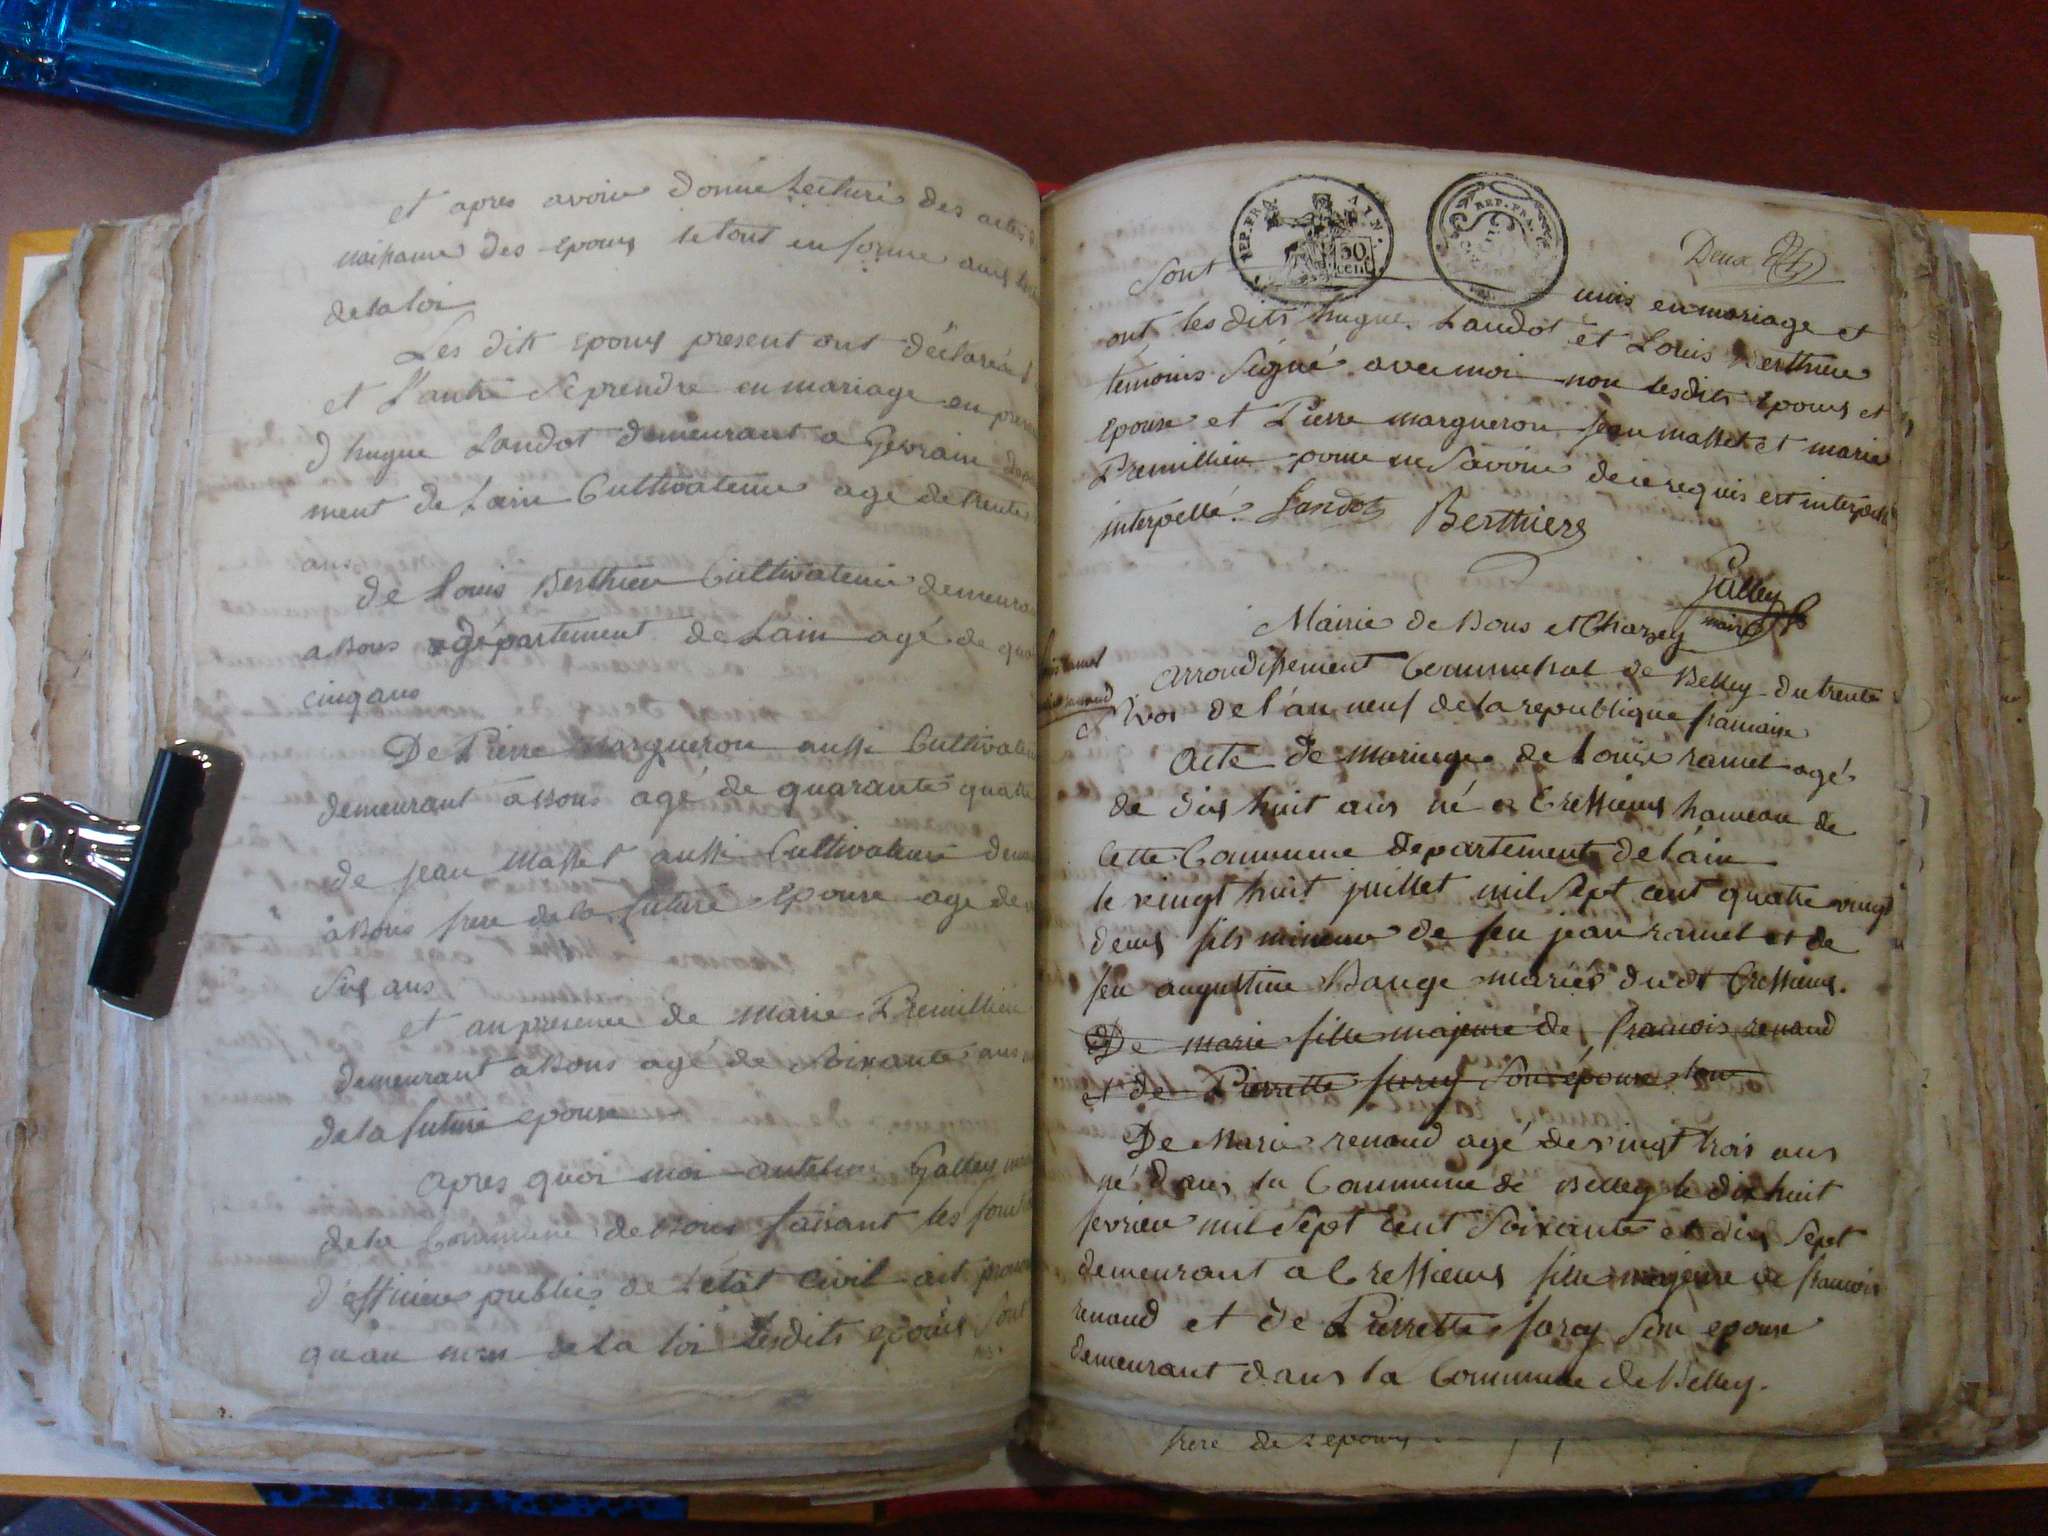 et apres avoir donné Lecture des actes
naissance des epoux le tout en forme aux
de la loi
Les dits epoux present ont déclaré
et l'autre se prendre en mariage en presen
d hugue Landot demeurant a Gevrain
ment de Lain Cultivateur agé de trente
ans
de Louis Berthier Cultivateur demeuran
a Bons département de Lain agé de qua
cinq ans
De Pierre Margueron aussi Cultivateu
demeurant a Bons agé de quarante quatre
de jean Masset aussi Cultivateur demeu
a Bons frere de la future Epouse age de
Six ans
et en presence de marie Premillieu
demeurant a Bons agé de Soixante ans
de la future epouse
apres quoi moi antelme Galley
de la Commune de Bons faisant les fonc
d'officier public de l'etat Civil ait pronon
qu'au nom de la loi lesdits epoux sont
REP. FRA. AIN.
50 cent.
REP. FRA.
Deux
Sont unis en mariage et
ont les dits hugue Landot et Louis Berthier
temoins Signé avec moi non lesdits Epoux et
Epouse et Pierre margueron jean masset et marie
Premillieu pour ne Savoir de ce requis et interpellé
interpellé. Landot Berthier
Galley
maire
Mairie de Bons et Chazey
arrondissement Communal de Belley du trente
de l'an neuf de la republique francaise
ramel
renaud
Acte de Mariage de Louis ramel agé
de dix huit ans né a Cressieux hameau de
Cette Commune departement de Lain
le vingt huit juillet mil Sept cent quatre vingt
deux fils mineur de feu jean ramel et de
feu augustine Bange mariés dudt Cressieux.
De marie fille majeure de francois renaud
et de Pierrette faray Son épouse
De Marie renaud agé de vingt trois ans
né dans la Commune de Belley le dix huit
fevrier mil Sept Cent Soixante et dix Sept
demeurant a Cressieux fille majeure de francois
renaud et de Pierrette faray Son epouse
demeurant dans la Commune de Belley.
frere de l epoux